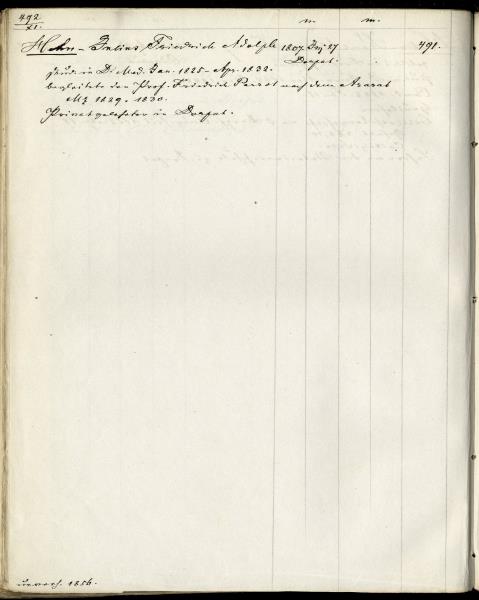 492
XI.
n. m.
Hehn - Julius Friedrich Adolph 1807. 27 491.
Dorpat.
stud. in D. Med. Jan. 1825 - Apr. 1832.
begleitete den Prof. Friedrich Parrot nach dem Ararat
1829. 1830.
Privatgelehrter in Dorpat.
1856.